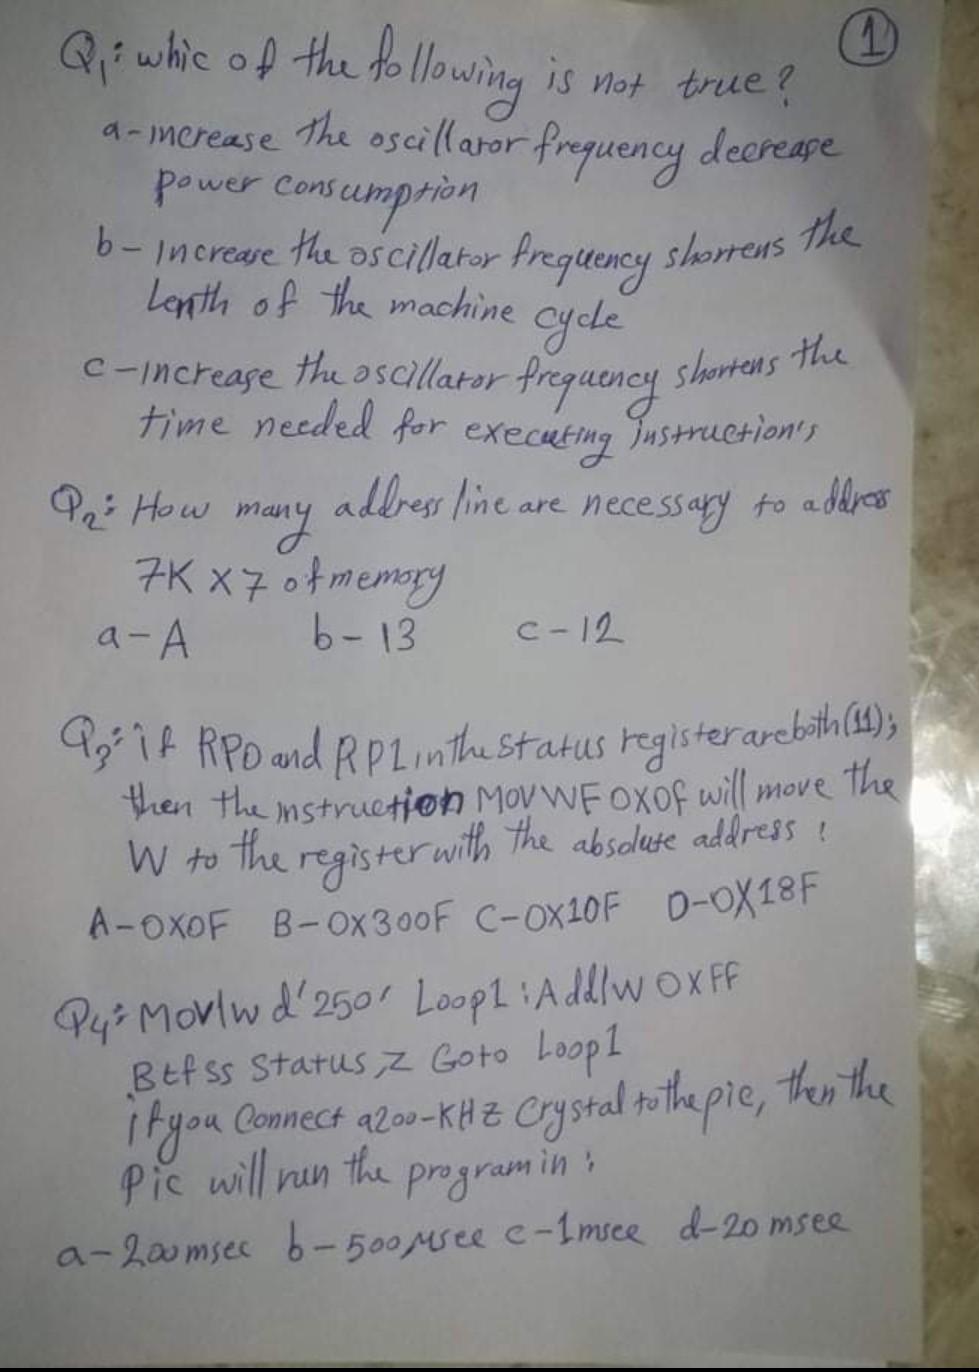 1
Q1: whic of the following is not true?
a- increase the oscillator frequency decrease
power consumption
b- Increase the oscillator frequency shortens the
Lenth of the machine cycle
c- increase the oscillator frequency shortens the
time needed for executing instruction's
Q2: How many address line are necessary to address
7K x 7 of memory
a- A b- 13 c- 12
Q3: if RP0 and RP1 in the status register are both (11);
then the instruction MOVWF 0X0F will move the
W to the register with the absolute address :
A-0X0F B-0X300F C-0X10F D-0X18F
Q4: Movlw d'250' Loop1 : Addlw 0xFF
Btfss Status,z Goto Loop1
if you Connect a 200-KHZ Crystal to the pic, then the
Pic will run the program in :
a- 200msec b- 500μsec c- 1msec d- 20 msec